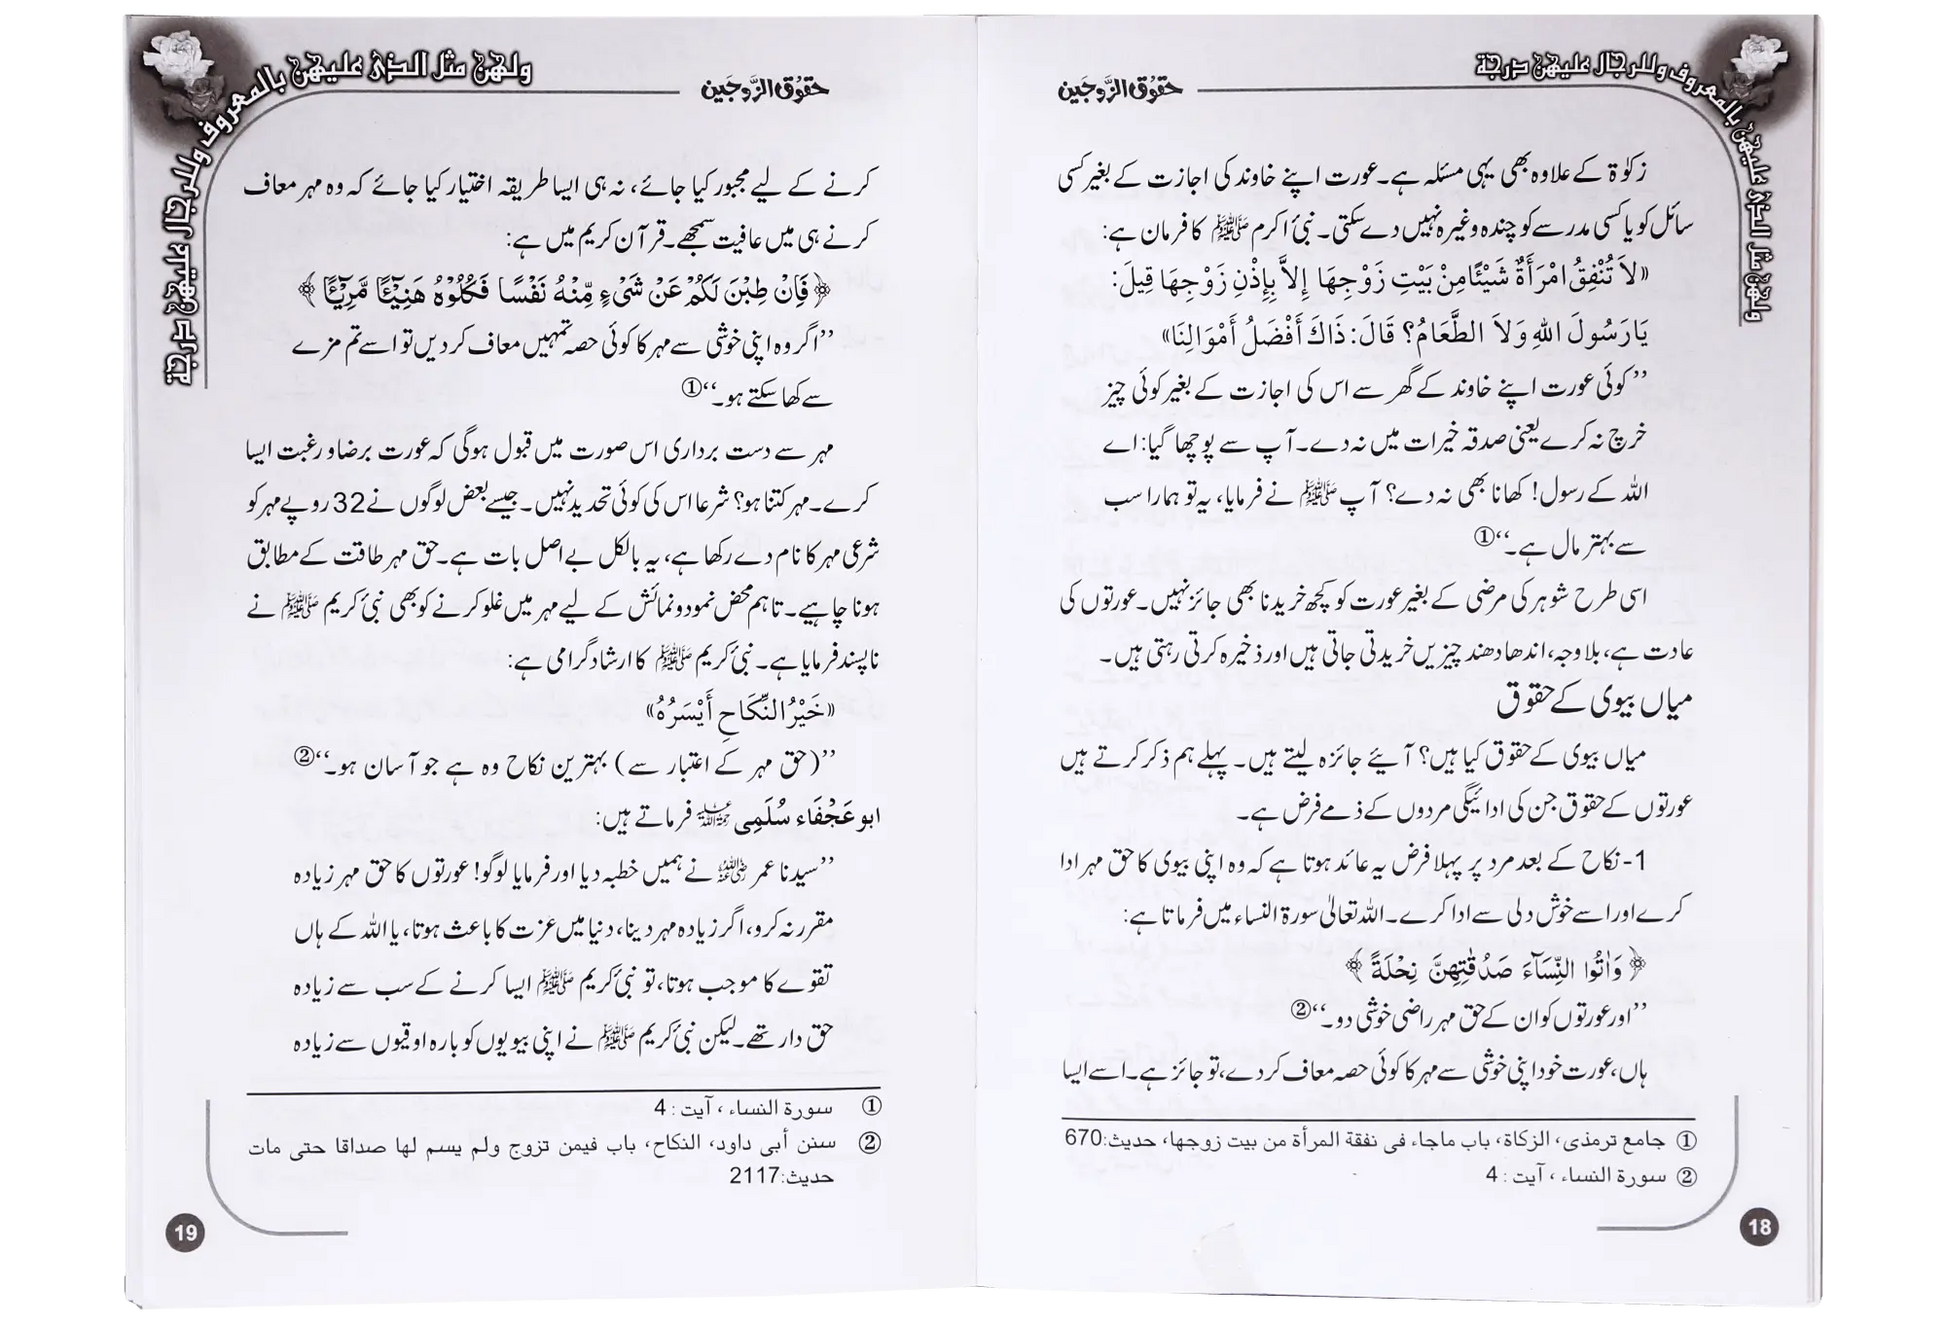 ولهن مثل الذی علیهن بالمعروف وللرجال علیهن درجة
حقوق الزَّوجَین
زکوٰۃ کے علاوہ بھی یہی مسئلہ ہے۔ عورت اپنے خاوند کی اجازت کے بغیر کسی
سائل کو یا کسی مدرسے کو چندہ وغیرہ نہیں دے سکتی۔ نبیٔ اکرم ﷺ کا فرمان ہے:
«لاَ تُنْفِقُ امْرَأَةٌ شَيْئًا مِنْ بَيْتِ زَوْجِهَا إِلاَّ بِإِذْنِ زَوْجِهَا قِيلَ:
يَارَسُولَ اللهِ وَلاَ الطَّعَامُ؟ قَالَ: ذَاكَ أَفْضَلُ أَمْوَالِنَا»
’’کوئی عورت اپنے خاوند کے گھر سے اس کی اجازت کے بغیر کوئی چیز
خرچ نہ کرے یعنی صدقہ خیرات میں نہ دے۔ آپ سے پوچھا گیا: اے
اللہ کے رسول! کھانا بھی نہ دے؟ آپ ﷺ نے فرمایا، یہ تو ہمارا سب
سے بہتر مال ہے۔‘‘①
اسی طرح شوہر کی مرضی کے بغیر عورت کو کچھ خریدنا بھی جائز نہیں۔ عورتوں کی
عادت ہے، بلا وجہ، اندھا دھند چیزیں خریدتی جاتی ہیں اور ذخیرہ کرتی رہتی ہیں۔
میاں بیوی کے حقوق
میاں بیوی کے حقوق کیا ہیں؟ آیئے جائزہ لیتے ہیں۔ پہلے ہم ذکر کرتے ہیں
عورتوں کے حقوق جن کی ادائیگی مردوں کے ذمے فرض ہے۔
1- نکاح کے بعد مرد پر پہلا فرض یہ عائد ہوتا ہے کہ وہ اپنی بیوی کا حق مہر ادا
کرے اور اسے خوش دلی سے ادا کرے۔ اللہ تعالیٰ سورۃ النساء میں فرماتا ہے:
﴿ وَاٰتُوا النِّسَآءَ صَدُقٰتِهِنَّ نِحْلَةً ﴾
’’اور عورتوں کو ان کے حق مہر راضی خوشی دو۔‘‘②
ہاں، عورت خود اپنی خوشی سے مہر کا کوئی حصہ معاف کر دے، تو جائز ہے۔ اسے ایسا
① جامع ترمذی، الزکاة، باب ماجاء فی نفقة المرأة من بیت زوجها، حدیث:670
② سورة النساء ، آیت : 4
18
ولهن مثل الذی علیهن بالمعروف وللرجال علیهن درجة
حقوق الزَّوجَین
کرنے کے لیے مجبور کیا جائے، نہ ہی ایسا طریقہ اختیار کیا جائے کہ وہ مہر معاف
کرنے ہی میں عافیت سمجھے۔ قرآن کریم میں ہے:
﴿ فَاِنْ طِبْنَ لَكُمْ عَنْ شَیْءٍ مِّنْهُ نَفْسًا فَكُلُوْهُ هَنِیْٓـًٔا مَّرِیْٓـًٔا ﴾
’’اگر وہ اپنی خوشی سے مہر کا کوئی حصہ تمہیں معاف کر دیں تو اسے تم مزے
سے کھا سکتے ہو۔‘‘①
مہر سے دست برداری اس صورت میں قبول ہوگی کہ عورت برضا و رغبت ایسا
کرے۔ مہر کتنا ہو؟ شرعا اس کی کوئی تحدید نہیں۔ جیسے بعض لوگوں نے 32 روپے مہر کو
شرعی مہر کا نام دے رکھا ہے، یہ بالکل بے اصل بات ہے۔ حق مہر طاقت کے مطابق
ہونا چاہیے۔ تاہم محض نمود و نمائش کے لیے مہر میں غلو کرنے کو بھی نبیٔ کریم ﷺ نے
ناپسند فرمایا ہے۔ نبیٔ کریم ﷺ کا ارشاد گرامی ہے:
«خَيْرُ النِّكَاحِ أَيْسَرُهُ»
’’(حق مہر کے اعتبار سے) بہترین نکاح وہ ہے جو آسان ہو۔‘‘②
ابو عَجْفَاء سُلَمِی رحمہ اللہ فرماتے ہیں:
’’سیدنا عمر رضی اللہ عنہ نے ہمیں خطبہ دیا اور فرمایا لوگو! عورتوں کا حق مہر زیادہ
مقرر نہ کرو، اگر زیادہ مہر دینا، دنیا میں عزت کا باعث ہوتا، یا اللہ کے ہاں
تقوے کا موجب ہوتا، تو نبیٔ کریم ﷺ ایسا کرنے کے سب سے زیادہ
حق دار تھے۔ لیکن نبیٔ کریم ﷺ نے اپنی بیویوں کو بارہ اوقیوں سے زیادہ
① سورة النساء ، آیت : 4
② سنن أبی داود، النکاح، باب فیمن تزوج ولم یسم لها صداقا حتی مات
حدیث:2117
19